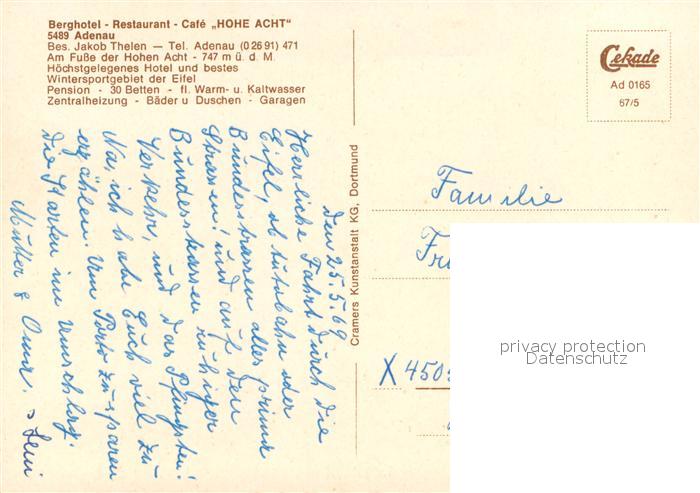 Berghotel - Restaurant - Café „HOHE ACHT"
5489 Adenau
Bes. Jakob Thelen — Tel. Adenau (0 26 91) 471
Am Fuße der Hohen Acht - 747 m ü. d. M.
Höchstgelegenes Hotel und bestes
Wintersportgebiet der Eifel
Pension - 30 Betten - fl. Warm- u. Kaltwasser
Zentralheizung - Bäder u Duschen - Garagen
Cekade
Ad 0165
67/5
Cramers Kunstanstalt KG, Dortmund
Den 25.5.69
Herrliche Fahrt durch die
Eifel, ob Autobahn oder
Bundesstrassen alles prima
Strassen! und auf den
Bundesstrassen ruhiger
Verkehr, und das Pfingsten!
Na, ich habe Euch viel zu
erzählen. Um Porto zu sparen
die Karten im Umschlag.
Mutter & Oma.
Familie
X 450
privacy protection
Datenschutz